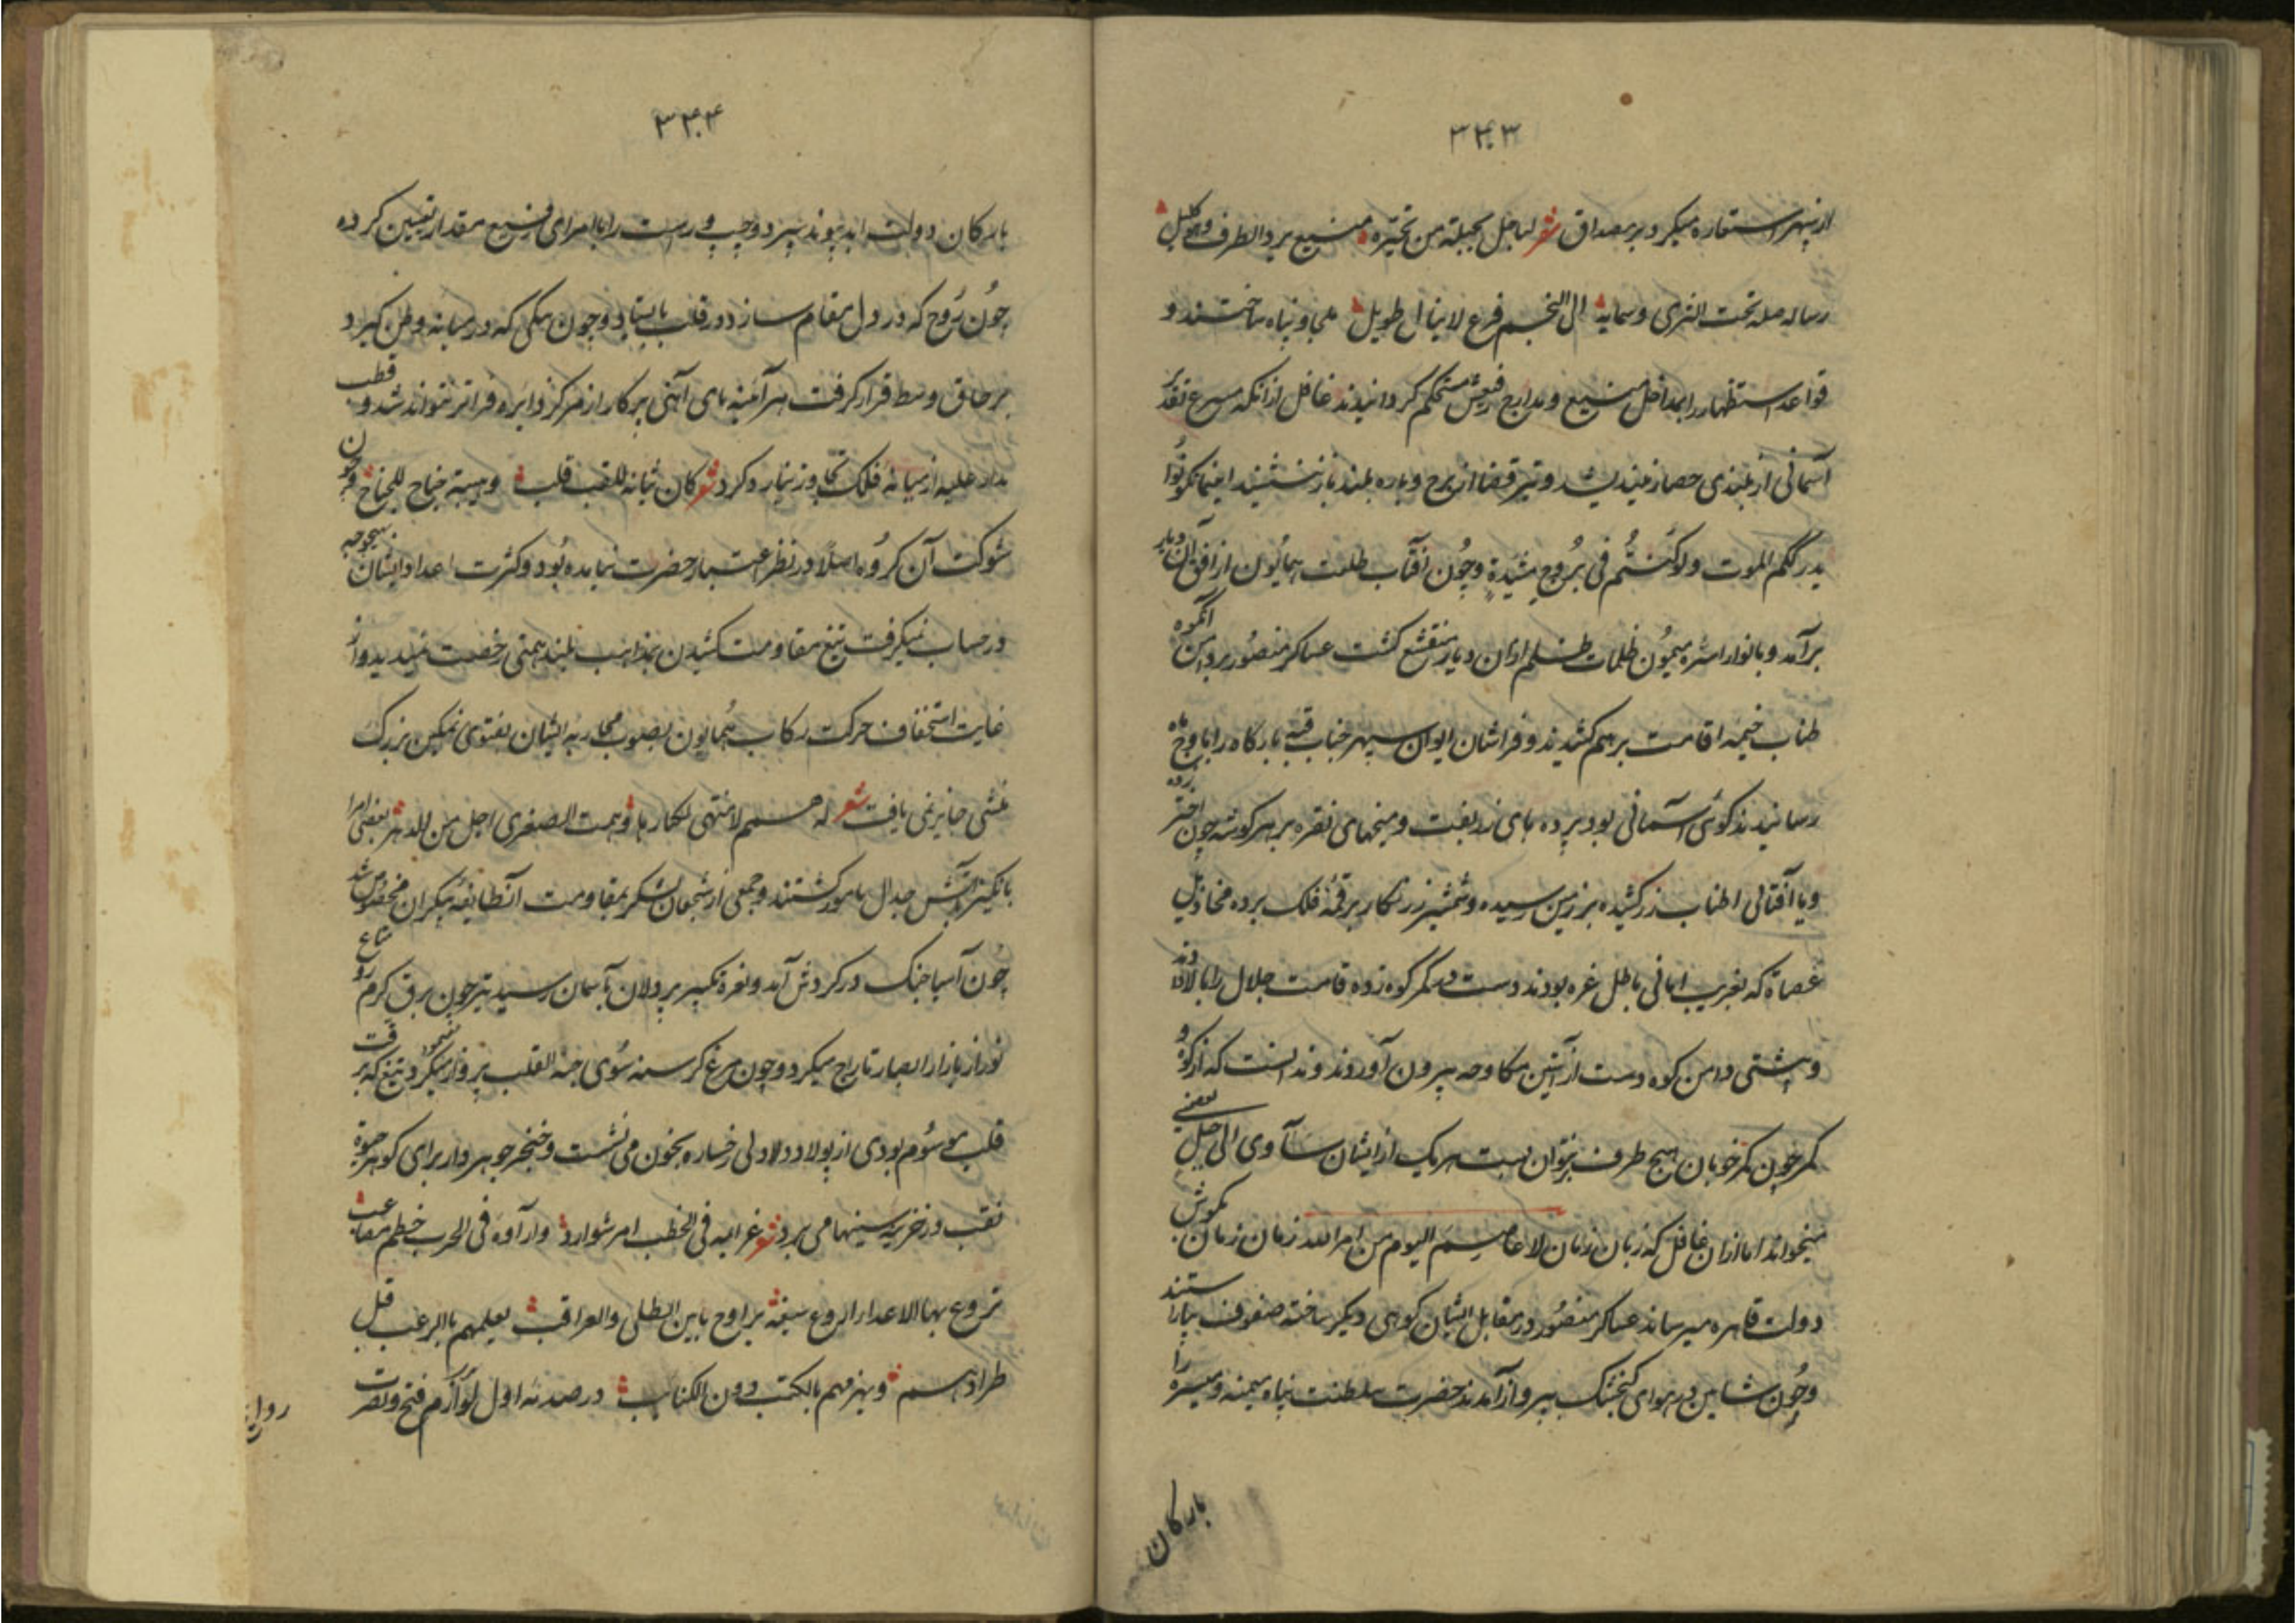 ۳۴۳
از سپهر استعاره میکرد بر مصداق شعر لنا جبل یحتله من نجیره منیع یرد الطرف وهو کلیل
رسا اصله تحت الثری و سما به الی النجم فرع لا ینال طویل ملجا و پناه ساختند و
قواعد استظهار را بمداخل منیع و مدارج رفیعش مستحکم گردانیدند غافل از آنکه مسرع تقدیر
آسمانی از بلندی حصار نیندیشد و تیر قضا از برج و باره بلند باز ننشیند اینما تکونوا
یدرککم الموت ولو کنتم فی بروج مشیدة و چون آفتاب طلعت همایون از افق آن دیار
برآمد و بانوار اشره میمون ظلمات ظلم ازان دیار منقشع گشت عساکر منصور بر دامن آنکوه
طناب خیمه اقامت بر هم کشیدند و فراشان ایوان سپهر جناب قبه بارگاه را باوج ماه
رسانیدند گوئی آسمانی بود پرده های زربفت و میخهای نقره بر هر گوشه چون اختر زده
و یا آفتابی اطناب زر کشیده بر زمین رسیده و شمشیر زرنگار بر قمه فلک برده مخاذیل
عصاة که بفریب امانی باطل غره بودند دست در کمر کوه زده قامت جلال را بالا دند
و پشتی دامن کوه دست از آستین مکاوحه بیرون آوردند و ندانست که از کوه و
کمر چون کمر خوبان هیچ طرف نتوان بست هر یک از ایشان سآوی الی جبل یعصمنی
میخواند اما ازان غافل که زبان زمان لا عاصم الیوم من امر الله زمان زمان بگوش
دولت قاهره میرساند عساکر منصور در مقابل ایشان کوهی دیگر ساخته صفوف بیاراستند
و چون شاهین در هوای گنجشک بپرواز آمدند حضرت سلطنت پناه میمنه و میسره را
بارکان
۳۴۴
بارکان دولت ابد پیوند سپرد و چپ و راست را با امرای رفیع مقدار تعیین کرده
چون روح که در دل مقام سازد در قلب بایستاد و چون یکی که در میانه وطن گیرد
بر حاق وسط قرار گرفت هر آینه پای آهنی پرکار از مرکز دایره فراتر نتواند شد و قطب
مدار علیه از میانه فلک تجاوز نیارد کرد شعر کان ثباته للقلب قلب و هیبته جناح للجناح و چون
شوکت آن گروه اصلا در نظر اعتبار حضرت نیامده بود و کثرت اعداد ایشان بهیچوجه
در حساب نمیگرفت تیغ مقاومت کشیدن بمذهب بلند همتی رخصت نمیدید و از
غایت استخفاف حرکت رکاب همایون بصوب محاربه ایشان بفتوی تمکین بزرگ
منشی جایز نمی یافت شعر له همم لا منتهی لکبارها و همت الصغری اجل من الدهر بعضی امرا
بانگیز آتش جدال مامور گشتند و جمعی از شجعان لشکر بمقاومت آن طایفه بیکران مخصوص شد
چون آسیا جنگ در گردش آمد و نعره تکبیر پردلان بآسمان رسید تیر چون برق گرم رو متاع
نور از بازار ابصار تاراج میکرد و چون مرغ گرسنه سوی حبة القلب پرواز مینمود و تیغ که بر
قلب موسوم بودی از پولاد دلاولی رخساره بخون می شست و خنجر جوهردار برای گوهر حیوة
نقب در خزینه سینها می برد شعر عزایمه فی الخطب امر شوارد و آراؤه فی الحرب خیطم مقاعب
تروع بها الاعداء الروع سیفه یراوح بابین الطلی والعراقب یعلمهم بالرعب قبل
طرادهم و یهزمهم بالکتب دون الکتائب در صدمه اول لوازم فتح و نصرت